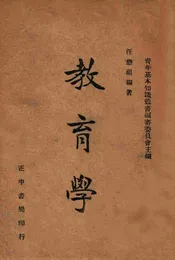 青年基本知識叢書編審委員會主編
任懋祖編著
教育學
正中書局印行